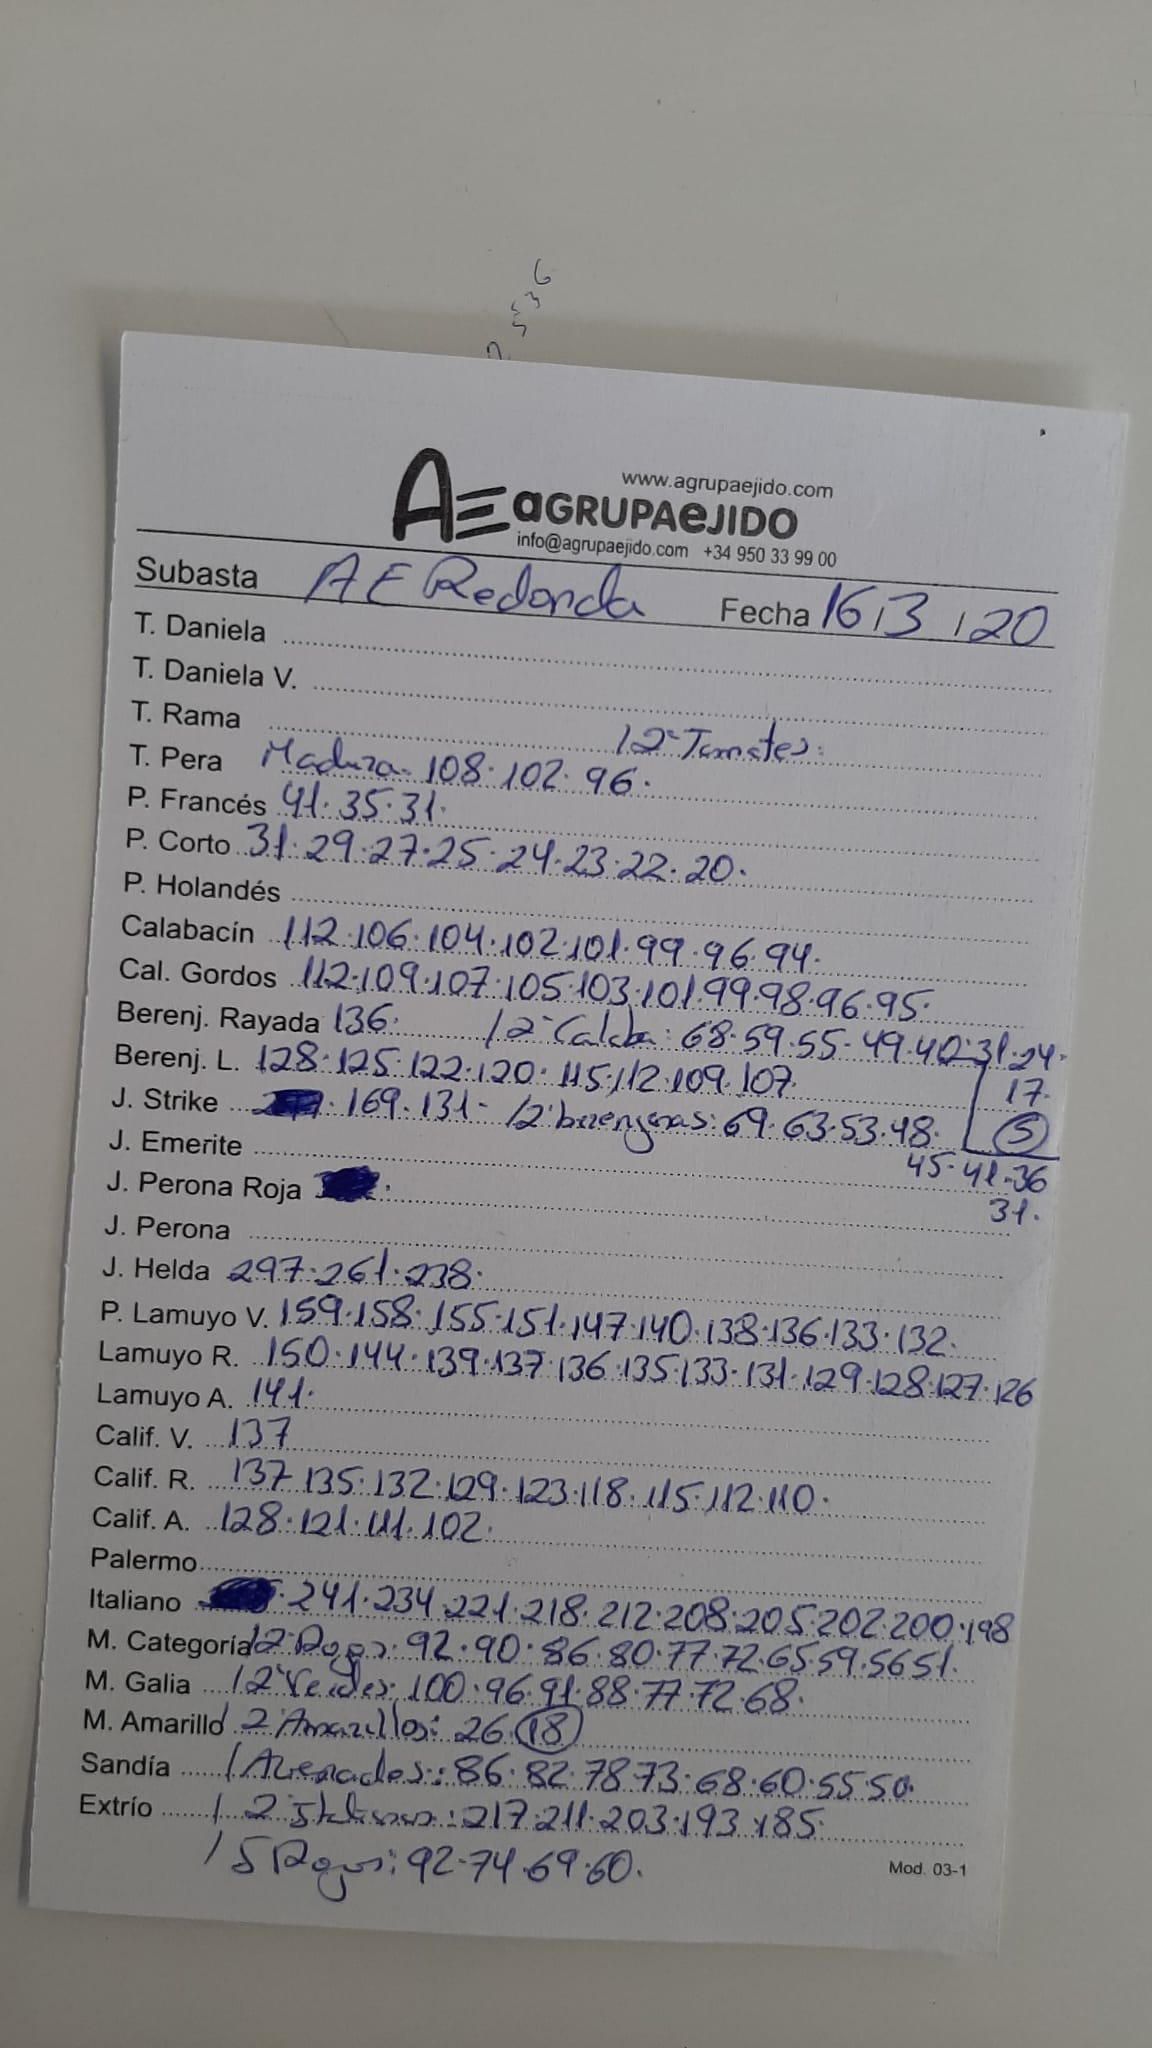 6
3
5
2
www.agrupaejido.com
AE aGRUPAeJIDO
info@agrupaejido.com +34 950 33 99 00
Subasta AE Redonda Fecha 16/3/20
T. Daniela
T. Daniela V.
T. Rama / 2ª Tomates:
T. Pera Madura. 108.102.96.
P. Francés 41.35.31.
P. Corto 31.29.27.25.24.23.22.20.
P. Holandés
Calabacín 112.106.104.102.101.99.96.94.
Cal. Gordos 112.109.107.105.103.101.99.98.96.95.
Berenj. Rayada 136. / 2ª Calaba: 68.59.55.49.40.31.24.
17.
5
Berenj. L. 128.125.122.120.115.112.109.107.
J. Strike 169.131- / 2ª berenjenas: 69.63.53.48.
45.41.36
31.
J. Emerite
J. Perona Roja
J. Perona
J. Helda 297.261.238.
P. Lamuyo V. 159.158.155.151.147.140.138.136.133.132.
Lamuyo R. 150.144.139.137.136.135.133.131.129.128.127.126
Lamuyo A. 141.
Calif. V. 137
Calif. R. 137.135.132.129.123.118.115.112.110.
Calif. A. 128.121.111.102.
Palermo
Italiano 241.234.221.218.212.208.205.202.200.198
M. Categoría / 2ª Rojos: 92.90.86.80.77.72.65.59.56.51.
M. Galia / 2ª Verdes: 100.96.91.88.77.72.68.
M. Amarillo / 2 Amarillos: 26.18
Sandía / Asienados: 86.82.78.73.68.60.55.50.
Extrío / 2 Italianos: 217.211.203.193.185.
/ 5 Rojos: 92.74.69.60.
Mod. 03-1